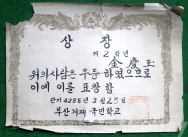 상장
제2학년
金慶玉
위의 사람은 우등 하였으므로
이에 이를 표창함
단기 4288년 3월 25일
부산거제 국민학교